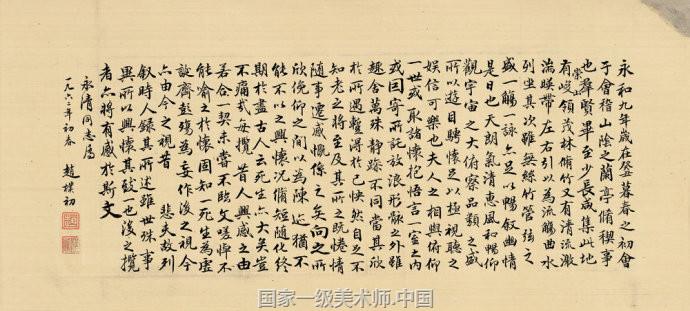 永和九年歲在癸丑暮春之初會
于會稽山陰之蘭亭脩稧事
也羣賢畢至少長咸集此地
有崇山峻領茂林脩竹又有清流激
湍暎帶左右引以為流觴曲水
列坐其次雖無絲竹管弦之
盛一觴一詠亦足以暢叙幽情
是日也天朗氣清惠風和暢仰
觀宇宙之大俯察品類之盛
所以遊目騁懷足以極視聽之
娛信可樂也夫人之相與俯仰
一世或取諸懷抱悟言一室之內
或因寄所託放浪形骸之外雖
趣舍萬殊靜躁不同當其欣
於所遇蹔得於己快然自足不
知老之將至及其所之既惓情
隨事遷感慨係之矣向之所
欣俛仰之間以為陳迹猶不
能不以之興懷況脩短隨化終
期於盡古人云死生亦大矣豈
不痛哉每攬昔人興感之由
若合一契未嘗不臨文嗟悼不
能喻之於懷固知一死生為虛
誕齊彭殤為妄作後之視今
亦由今之視昔 悲夫故列
叙時人錄其所述雖世殊事
異所以興懷其致一也後之攬
者亦將有感於斯文
永清同志属
一九六二年初春 趙樸初
国家一级美术师.中国